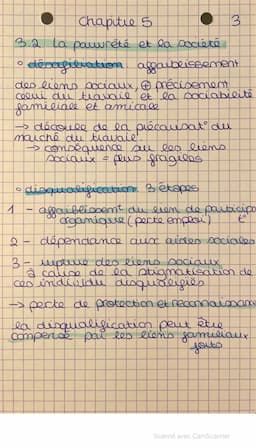 Chapitre 5
3
3.2 la pauvreté et la société
° désafiliation affaiblissement
des liens sociaux, ⊕ précisément
celui du travail et la sociabilité
familiale et amicale
→ découle de la précarisat° du
marché du travail
→ conséquence su les liens
sociaux = plus fragiles
° disqualification 3 étapes
1 - affaiblissemt du lien de participa
organique (perte emploi) t°
2 - dépendance aux aides sociales
3 - rupture des liens sociaux
à cause de la stigmatisation de
ces individu disqualifiés
→ perte de protection et reconnaissance
la disqualification peut être
compensé par les liens familiaux
forts
Scanné avec CamScanner